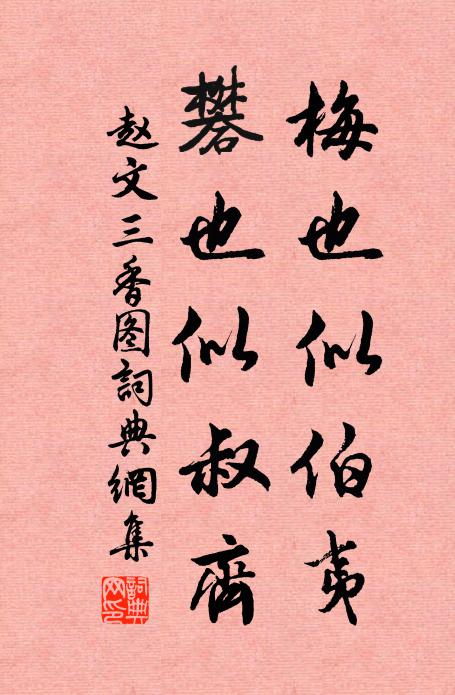 梅也似伯夷
礬也似叔齊
赵文三香图詞典網集
詞典網印